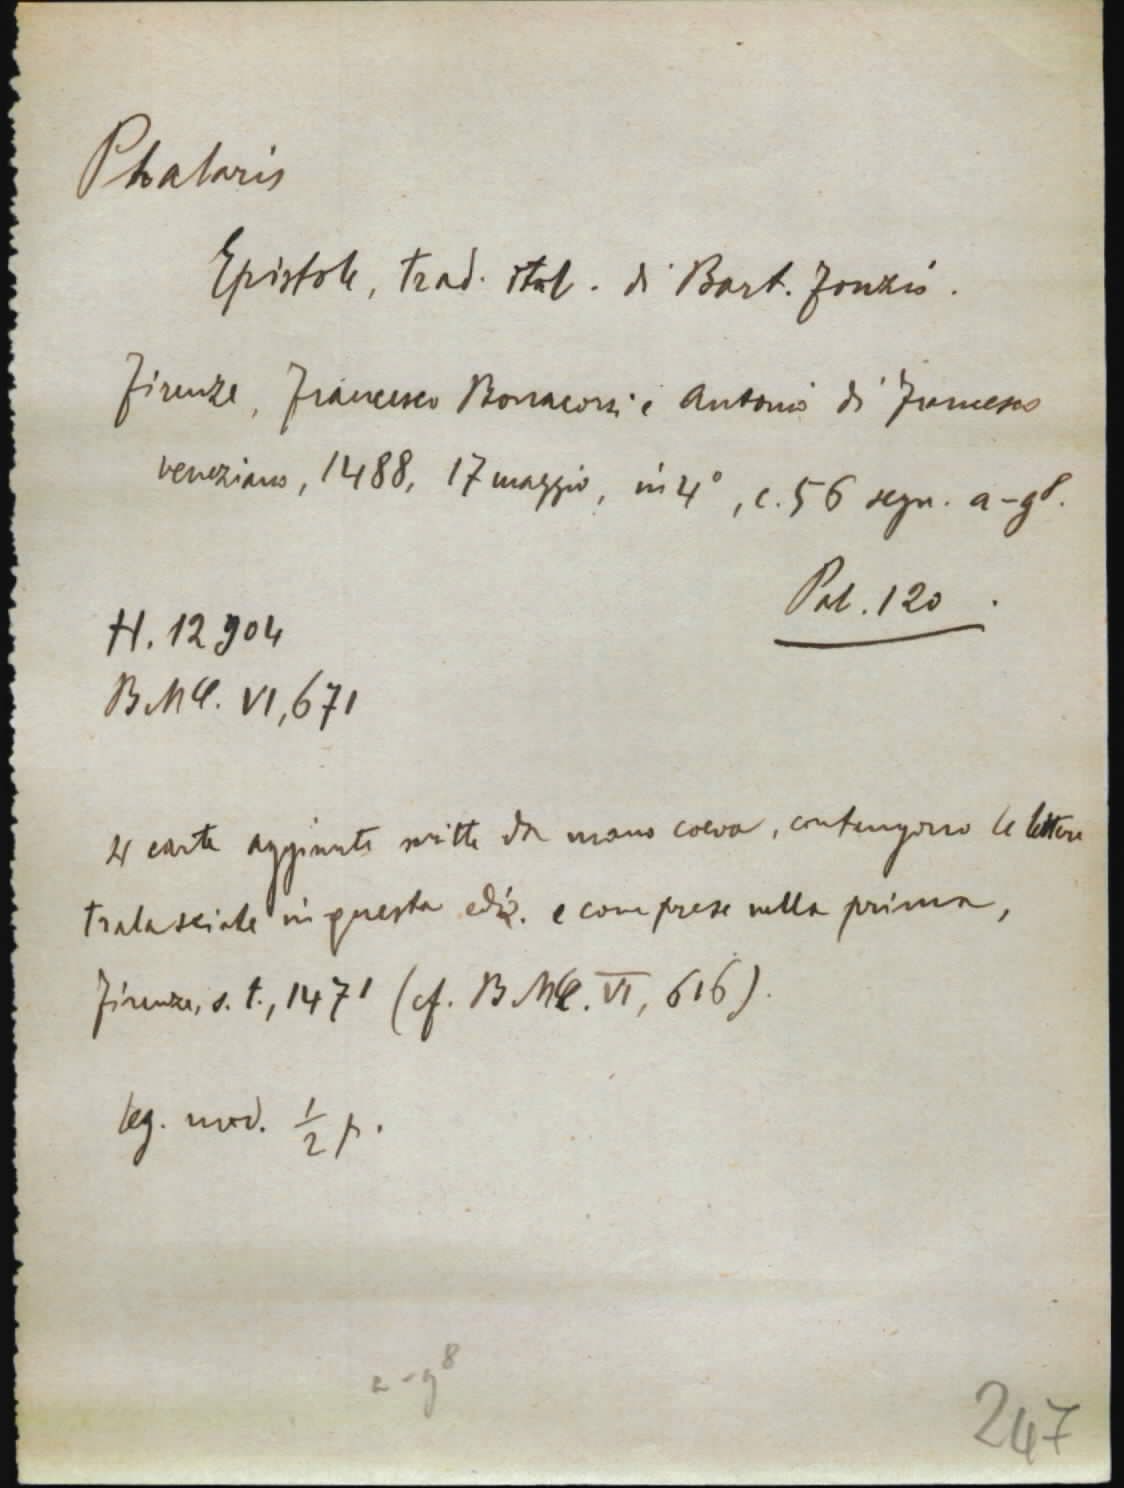 Phalaris
Epistole, trad. ital. di Bart. Fonzio.
Firenze, Francesco Bonacorsi e Antonio di Francesco
veneziano, 1488, 17 maggio, in 4°, c. 56 segn. a-g⁸.
Pal. 120.
H. 12904
BMC. VI, 671
4 carte aggiunte scritte da mano coeva, contengono le lettere
tralasciate in questa ediz. e comprese nella prima,
Firenze, s. t., 1471 (cf. BMC. VI, 616).
leg. mod. ½ p.
a-g⁸
247